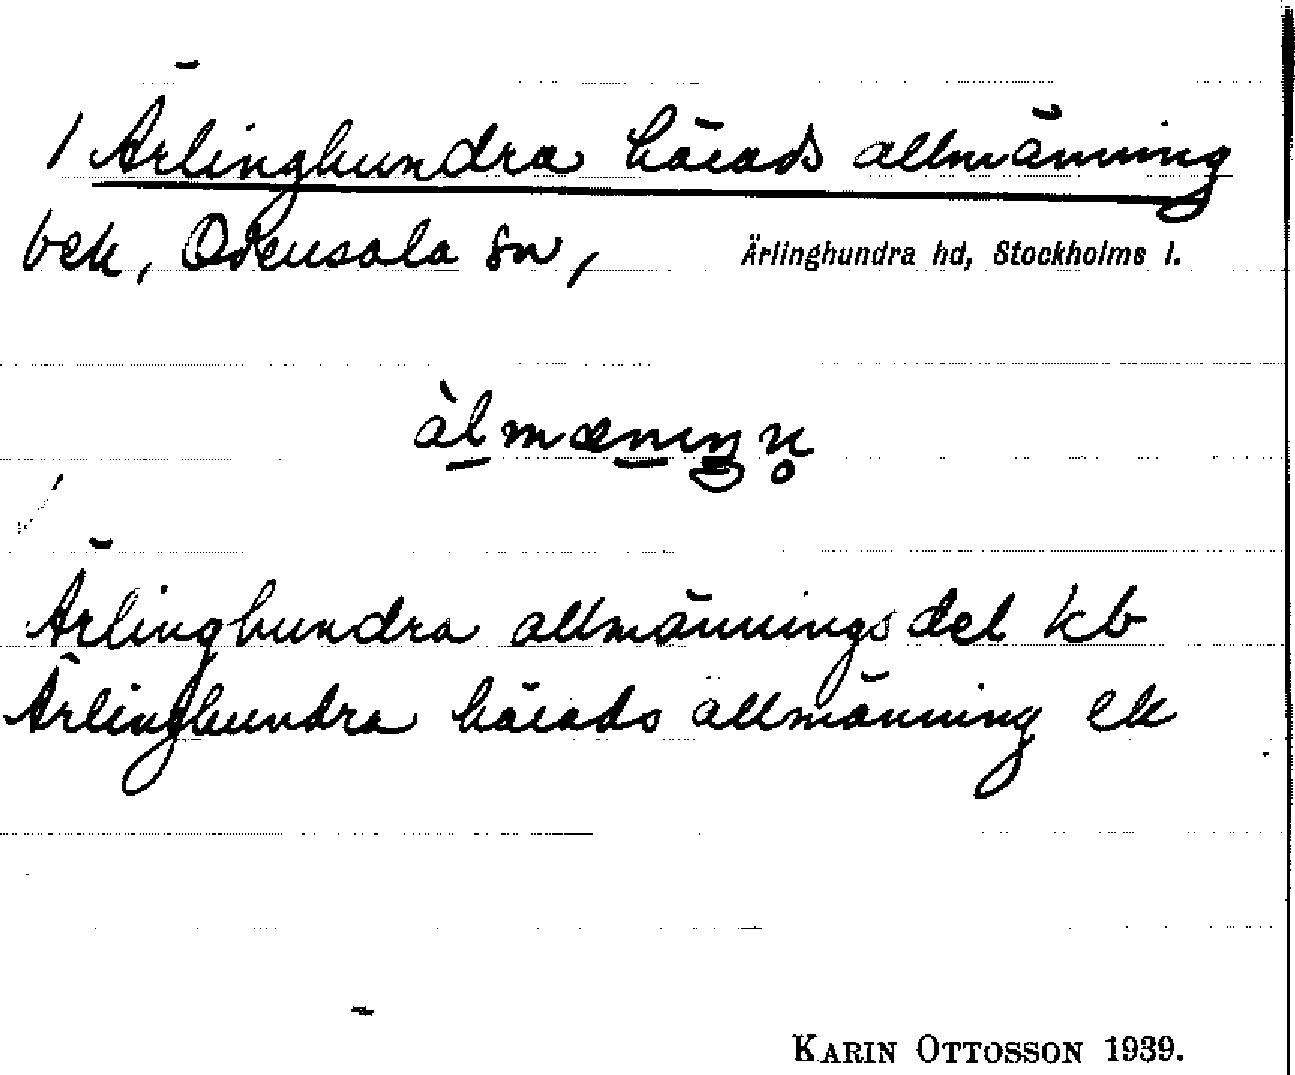 1 Ärlinghundra härads allmänning
bek, Odensala sn, Ärlinghundra hd, Stockholms l.
àlmænıŋn̥
Ärlinghundra allmänningsdel kb
Ärlinghundra härads allmänning ek
KARIN OTTOSSON 1939.